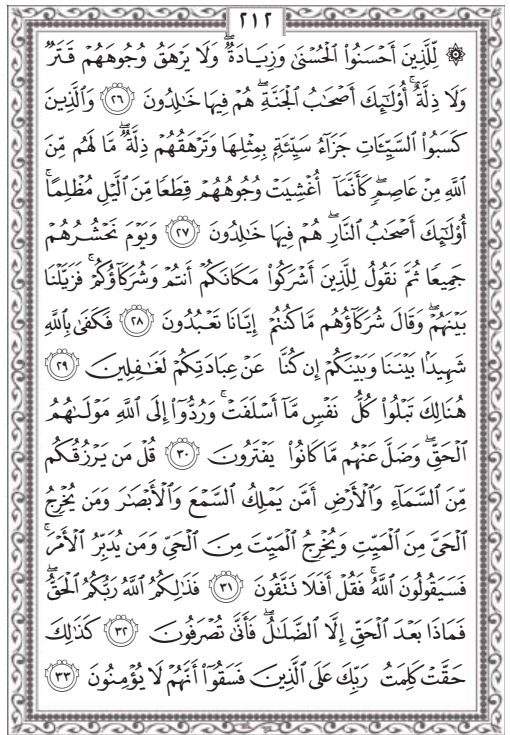 ٢١٢
۞ لِّلَّذِينَ أَحْسَنُوا۟ ٱلْحُسْنَىٰ وَزِيَادَةٌ ۖ وَلَا يَرْهَقُ وُجُوهَهُمْ قَتَرٌ
وَلَا ذِلَّةٌ ۚ أُو۟لَـٰٓئِكَ أَصْحَـٰبُ ٱلْجَنَّةِ ۖ هُمْ فِيهَا خَـٰلِدُونَ ﴿٢٦﴾ وَٱلَّذِينَ
كَسَبُوا۟ ٱلسَّيِّـَٔاتِ جَزَآءُ سَيِّئَةٍۭ بِمِثْلِهَا وَتَرْهَقُهُمْ ذِلَّةٌ ۖ مَّا لَهُم مِّنَ
ٱللَّهِ مِنْ عَاصِمٍ ۖ كَأَنَّمَآ أُغْشِيَتْ وُجُوهُهُمْ قِطَعًا مِّنَ ٱلَّيْلِ مُظْلِمًا ۚ
أُو۟لَـٰٓئِكَ أَصْحَـٰبُ ٱلنَّارِ ۖ هُمْ فِيهَا خَـٰلِدُونَ ﴿٢٧﴾ وَيَوْمَ نَحْشُرُهُمْ
جَمِيعًا ثُمَّ نَقُولُ لِلَّذِينَ أَشْرَكُوا۟ مَكَانَكُمْ أَنتُمْ وَشُرَكَآؤُكُمْ ۚ فَزَيَّلْنَا
بَيْنَهُمْ ۖ وَقَالَ شُرَكَآؤُهُم مَّا كُنتُمْ إِيَّانَا تَعْبُدُونَ ﴿٢٨﴾ فَكَفَىٰ بِٱللَّهِ
شَهِيدًۢا بَيْنَنَا وَبَيْنَكُمْ إِن كُنَّا عَنْ عِبَادَتِكُمْ لَغَـٰفِلِينَ ﴿٢٩﴾
هُنَالِكَ تَبْلُوا۟ كُلُّ نَفْسٍ مَّآ أَسْلَفَتْ ۚ وَرُدُّوٓا۟ إِلَى ٱللَّهِ مَوْلَىٰهُمُ
ٱلْحَقِّ ۖ وَضَلَّ عَنْهُم مَّا كَانُوا۟ يَفْتَرُونَ ﴿٣٠﴾ قُلْ مَن يَرْزُقُكُم
مِّنَ ٱلسَّمَآءِ وَٱلْأَرْضِ أَمَّن يَمْلِكُ ٱلسَّمْعَ وَٱلْأَبْصَـٰرَ وَمَن يُخْرِجُ
ٱلْحَىَّ مِنَ ٱلْمَيِّتِ وَيُخْرِجُ ٱلْمَيِّتَ مِنَ ٱلْحَىِّ وَمَن يُدَبِّرُ ٱلْأَمْرَ ۚ
فَسَيَقُولُونَ ٱللَّهُ ۚ فَقُلْ أَفَلَا تَتَّقُونَ ﴿٣١﴾ فَذَٰلِكُمُ ٱللَّهُ رَبُّكُمُ ٱلْحَقُّ ۖ
فَمَاذَا بَعْدَ ٱلْحَقِّ إِلَّا ٱلضَّلَـٰلُ ۖ فَأَنَّىٰ تُصْرَفُونَ ﴿٣٢﴾ كَذَٰلِكَ
حَقَّتْ كَلِمَتُ رَبِّكَ عَلَى ٱلَّذِينَ فَسَقُوٓا۟ أَنَّهُمْ لَا يُؤْمِنُونَ ﴿٣٣﴾